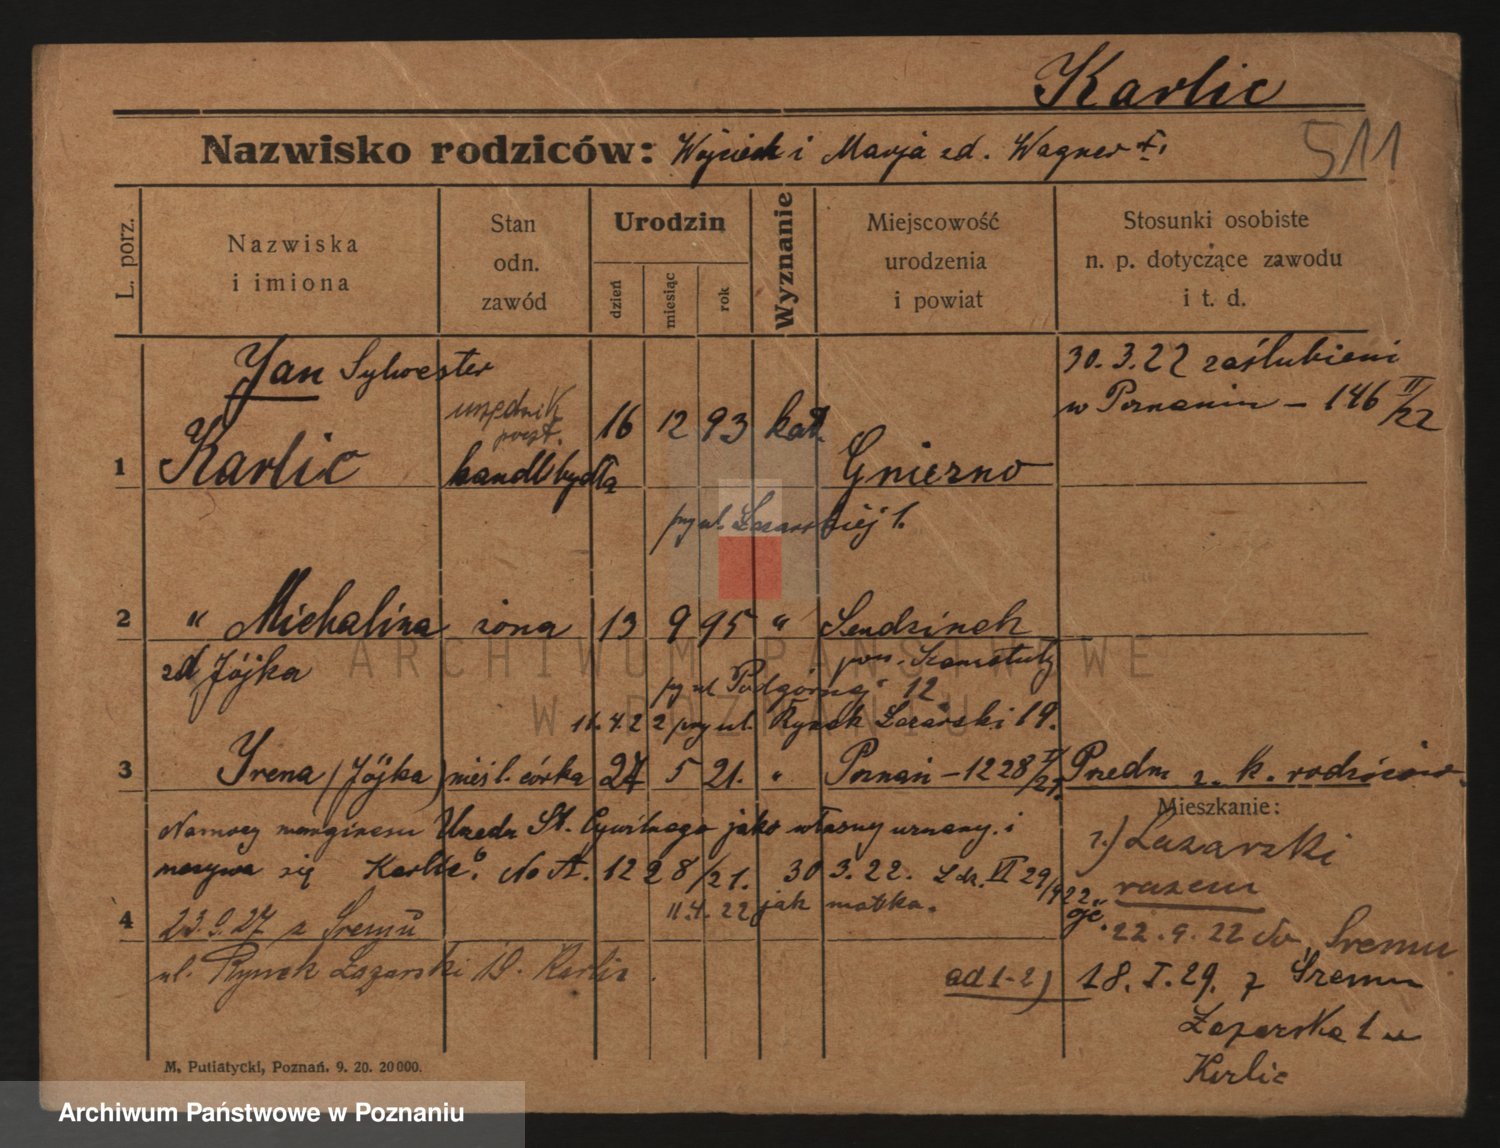 Karlic
Nazwisko rodziców: Wojciech i Marja zd. Wagner
511
L. porz.
Nazwiska
i imiona
Stan
odn.
zawód
Urodzin
dzień
miesiąc
rok
Wyznanie
Miejscowość
urodzenia
i powiat
Stosunki osobiste
n. p. dotyczące zawodu
i t. d.
Jan Sylwester
30.3.22 zaślubieni
urzędnik
w Poznaniu - 146 II/22
poczt.
1 Karlic handl bydła 16 12 93 kat. Gniezno
przy ul. Łazarskiej 1.
2 " Michalina żona 13 9 95 " Sendzinek
zd Jójka
pow. Szamotuły
przy ul. Podgórnej 12
11.4.22 przy ul. Rynek Łazarski 19.
3 Irena (Jójka) nieśl. córka 27 5 21. " Poznań - 1228 /21. Przedm z. k. rodziców
Mieszkanie:
Na mocy marginesu Urzędu St. Cywilnego jako własny uznany i
nazywa się Karlic. No A. 1228/21. 30 3.22. L dz. VI 29/922
1.) Łazarski
razem
11.4.22 jak matka.
4
23.9.27 z Śremu
22.9.22 do Śremu
ul. Rynek Łazarski 10. Karlic
od 1-2) 18.I.29. z Śremu
Łazarska 1 u
Karlic
M. Putiatycki, Poznań. 9. 20. 20000.
ARCHIWUM PAŃSTWOWE
W POZNANIU
Archiwum Państwowe w Poznaniu